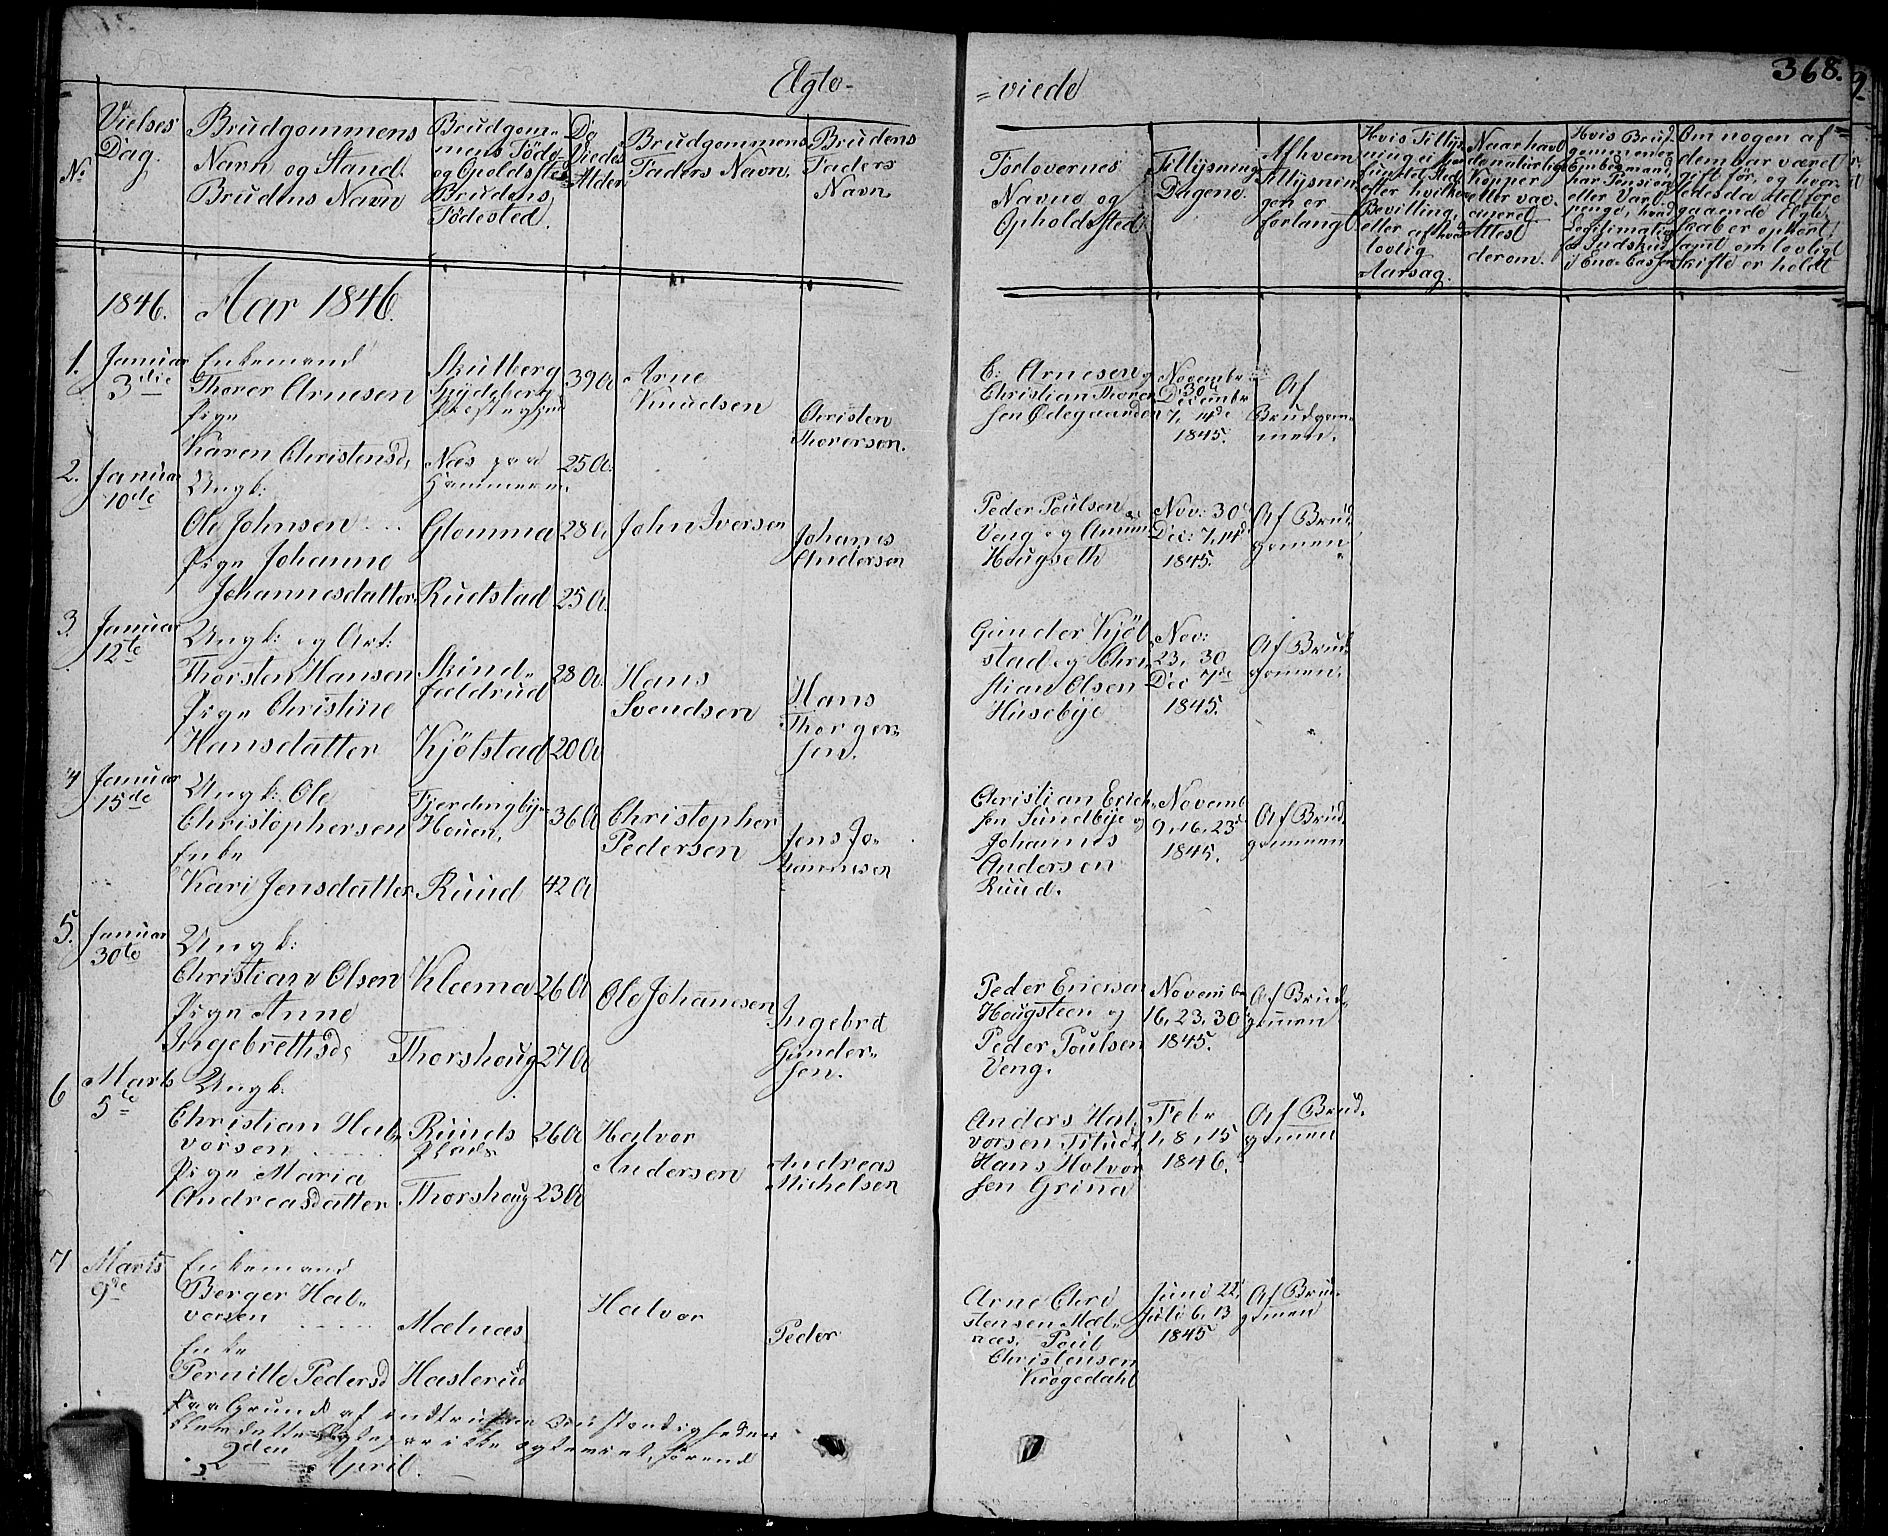 Elgte-
=viede
368.
No
Vielses
Dag.
Brudgommens
Navn og Stand.
Brudens Navn
Brudgom-
mens Føde
og Opoldsted
Brudens
Fødested.
De
Viedes
Alder
Brudgommens
Faders Navn.
Brudens
Faders
Navn
Forlovernes
Navne og
Opholdssted
Tillysning
Dagene
Af hvem
Tillysnin-
gen er
forlangt
Hvis Tillys-
ning ei har
fundet Sted
efter hvilken
Bevilling,
eller af hvad
lovlig
Aarsag.
Naar havt
de naturlige
Kopper
eller vac-
cineret
Attest
derom.
Hvis Brud-
gommen er
Embedsmand,
har Pension
eller Vart-
penge, hvad
Legitimation
for Indskud
i Enke Cassen
Om nogen af
dem har været
gift før, og hvor-
ledes da det fore
gaaende Ægte-
skab er ophørt,
samt om lovligt
Skifte er holdt
1846. Aar 1846.
1. Januar
3die
Enkemand
Thorer Arnesen
Pige
Karen Christensd.
Skulberg
Spydeberg
Præstegjeld
Næs paa
Hammeren.
39 A
25 A.
Arne
Knudsen
Christen
Thorersen.
C: Arnesen og
Christian Thorer
sen Ødegaarden
Novembr
30
Decembr
7, 14de
1845.
Af
Brudgom-
men.
2. Januar
10de
Ungk:
Ole Johnsen
Pige Johanne
Johannesdatter
Glomma
Rudstad
28 A
25 A.
John Iversen
Johans
Andersen
Peder Poulsen
Veng og Amun
Hougseth
Nov: 30
Dec: 7, 14de
1845.
Af Brud-
gomen
3. Januar
12te
Ungk: og Arb:
Thorsten Hansen
Pige Christine
Hansdatter
Skind-
foldrud
Kjölstad
28 A.
20 A
Hans
Svendsen
Hans
Thorger-
sen.
Gunder Kjöl
stad og Chri
stian Olsen
Husebije
Nov:
23, 30
Dec 7de
1845.
Af Brud-
gomen.
4 Januar
15de
Ungk: Ole
Christophersen
Enke
Kari Jensdatter
Fjerdingbije
Houen,
Ruud
36 A
42 A
Christopher
Pedersen
Jens Jo-
hannesen
Christian Erich-
sen Sundbije og
Johannes
Andersen
Ruud.
Novemb
9, 16, 23d
1845.
Af Brud-
gommen
5. Januar
30te
Ungk:
Christian Olsen
Pige Anne
Ingebrethsd:
Klæma
Thorshoug
26 A
27 A
Ole Johanesen
Ingebret
Gunder-
sen.
Peder Ericsen
Hougsteen og
Peder Poulsen
Veng.
Novemb
16, 23, 30
1845.
Af Brud-
gomen
6 Marts
5te
Ungk.
Christian Hal-
vorsen
Pige Maria
Andreasdatter
Ruuds
plads
Thorshoug
26 A
23 A
Halvor
Andersen
Andreas
Michelsen
Anders Hal-
vorsen Titud
Hans Halvor
sen Grina
Febr
1, 8, 15
1846.
Af Brud-
gomen
7 Marts
9de
Enkemand
Berger Hal-
vorsen
Enke
Pernille Pedersd
Mælnæs
Haslerud
Halvor
Peder
Arne Chri
stensen Mæl-
næs, Poul
Christensen
Krogedahl
Juni 22,
Juli 6, 13
1845
Af Brud-
gomen
Paa Grund af indtrufne Omstændigheder
blev dette Ægtepar ikke egteviet, førend
2den April.